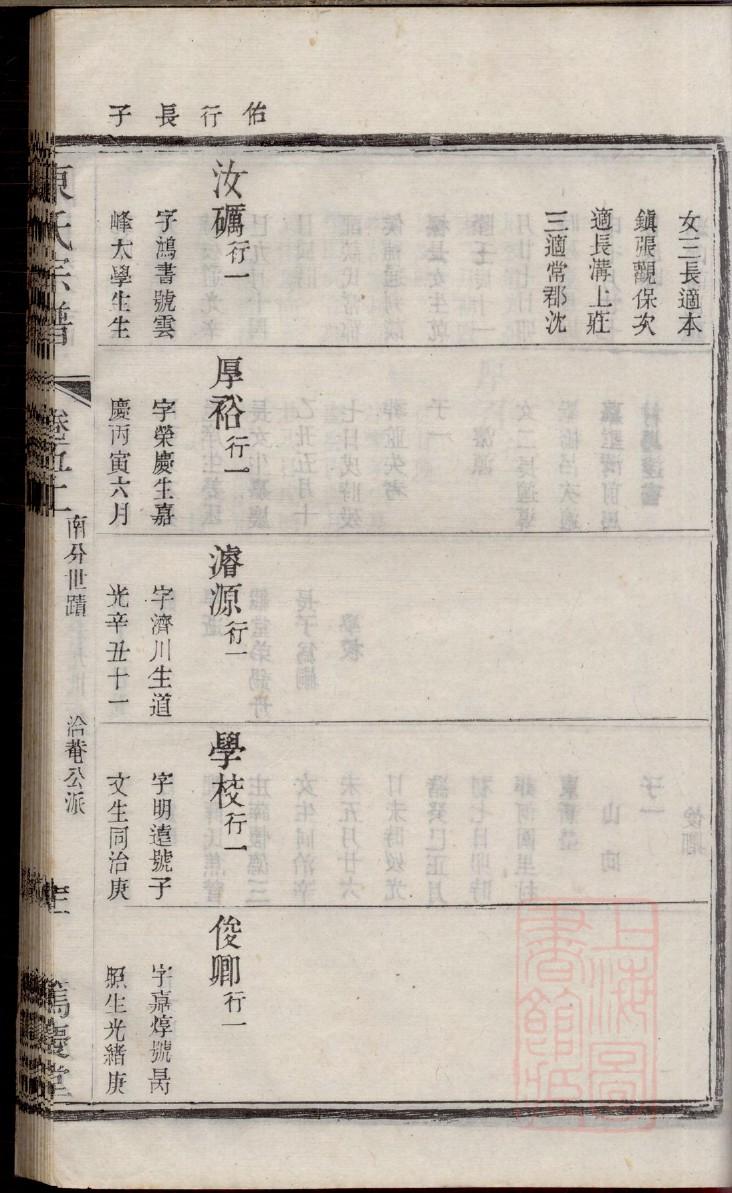 佑行長子
女三長適本
鎮張觀保次
適長溝上莊
三適常郡沈
汝礪行一
字鴻書號雲
峰太學生生
厚裕行一
字榮慶生嘉
慶丙寅六月
濬源行一
字濟川生道
光辛丑十一
學校行一
字明遠號子
文生同治庚
俊卿行一
字嘉焞號昺
照生光緒庚
氏宗譜
南分世蹟
洽菴公派
篤慶堂
上海圖書館藏